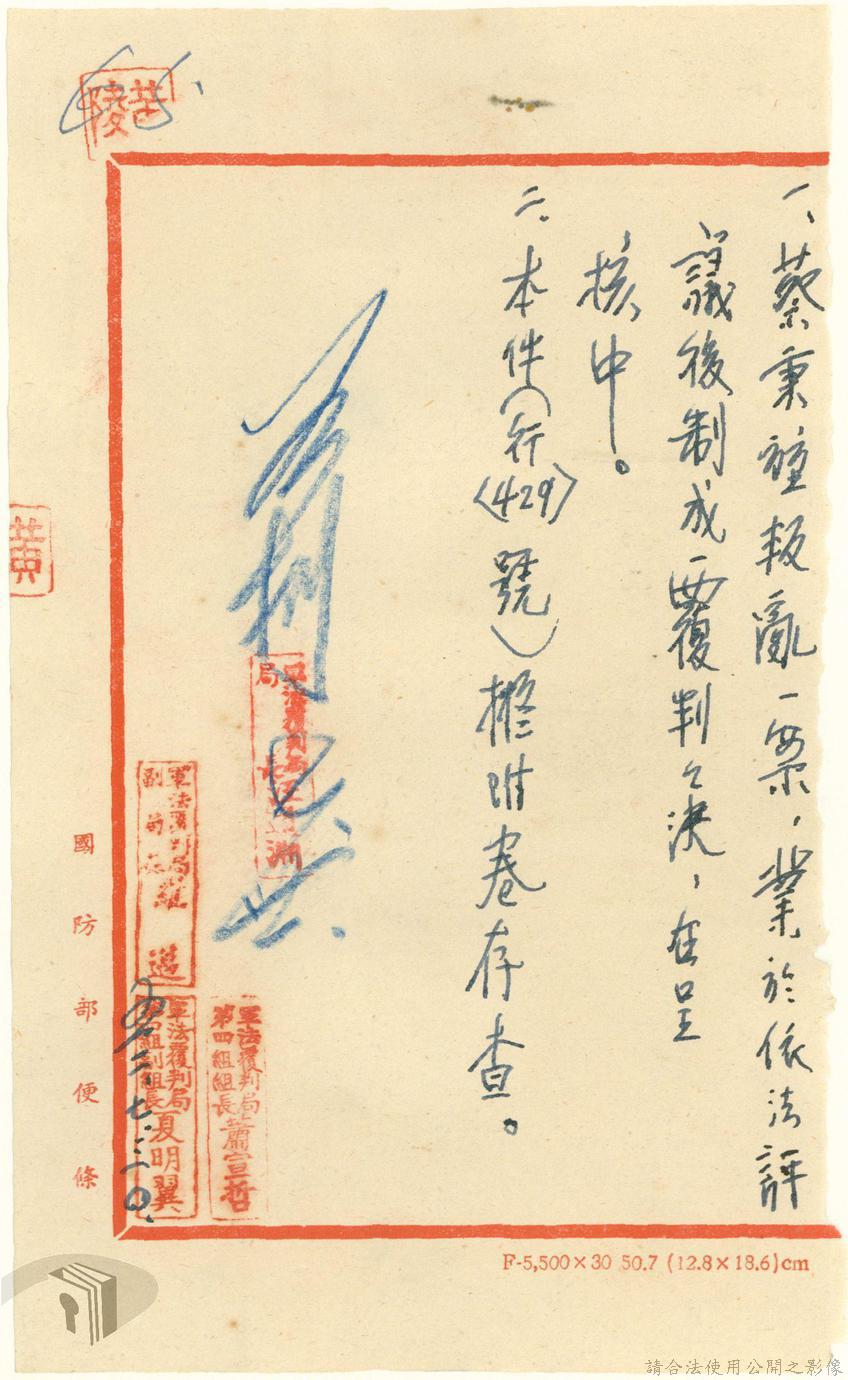 一、蔡秉堃叛亂一案，業於依法評
議後制成覆判公決，在呈
核中。
二、本件（行
〈429〉
號）擬附卷存查。
軍法覆判局
第四組組長蕭宣哲
軍法覆判局
副局長羅邁
軍法覆判局
第四組副組長夏明翼
國防部便條
黃
F-5,500×30 50.7 (12.8×18.6)cm
請合法使用公開之影像